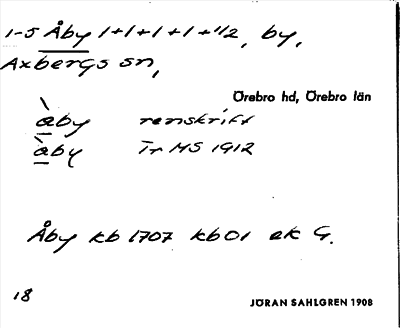 1-5 Åby 1+1+1+1+1/2, by,
Axbergs sn,
Örebro hd, Örebro län
àby renskrift
àby Tr MS 1912
Åby kb 1707 kb01 ek G.
18
JÖRAN SAHLGREN 1908